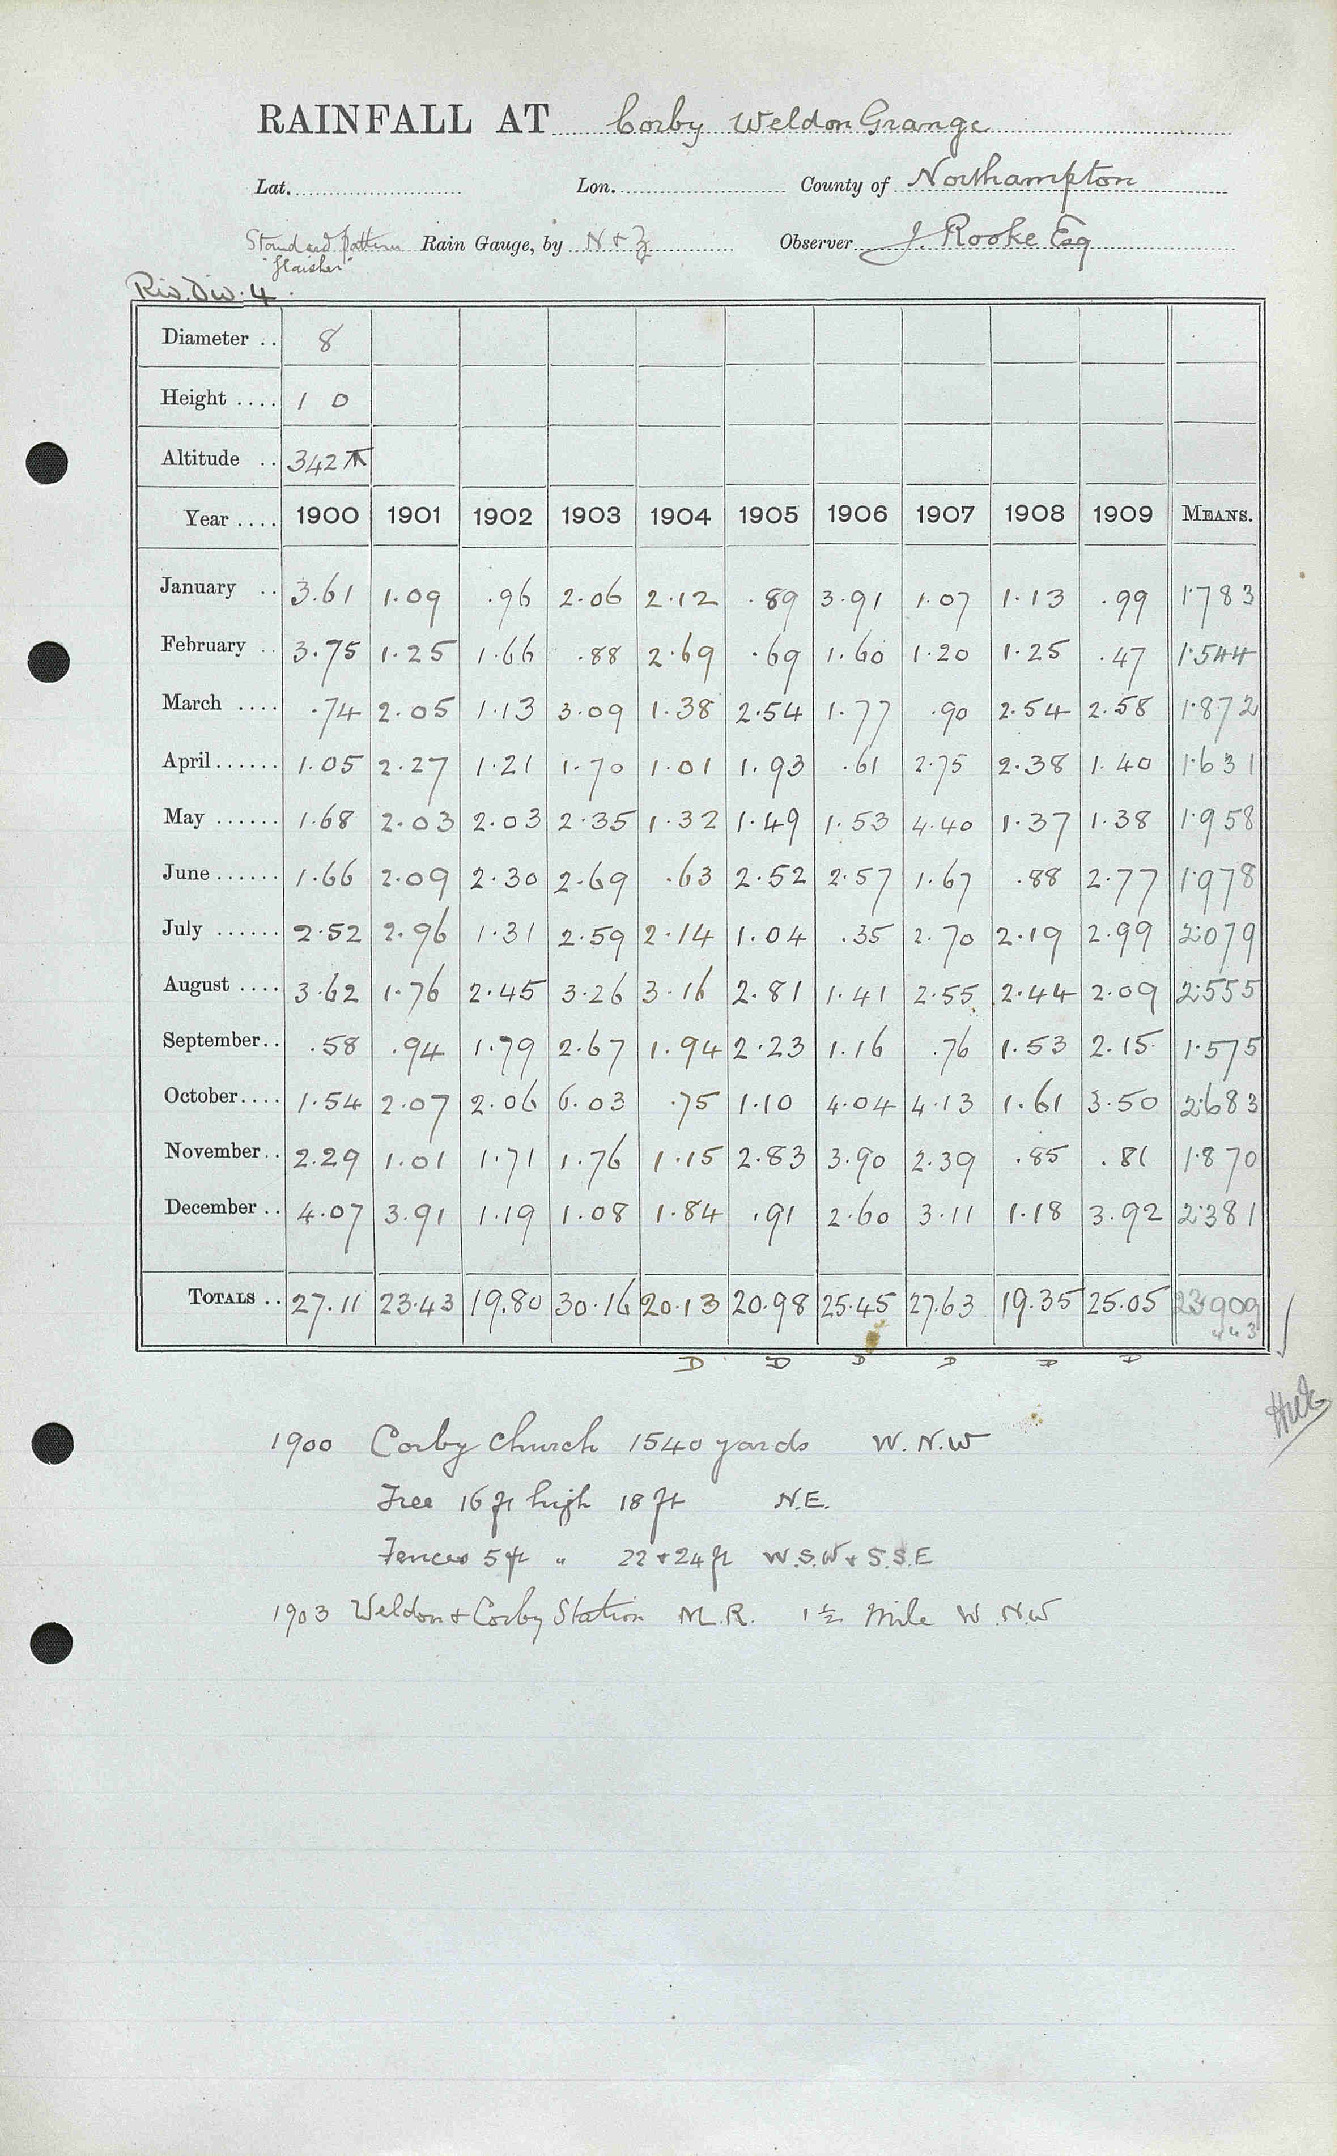 RAINFALL AT Corby Weldon Grange
Lat. Lon. County of Northampton
Standard pattern Rain Gauge, by N & Z Observer J. Rooke Esq
"Glaisher"
Riv. Div. 4.
Diameter .. 8
Height .... 1 0
Altitude .. 342
Year .... 1900 1901 1902 1903 1904 1905 1906 1907 1908 1909 MEANS.
January .. 3.61 1.09 .96 2.06 2.12 .89 3.91 1.07 1.13 .99 1.783
February .. 3.75 1.25 1.66 .88 2.69 .69 1.60 1.20 1.25 .47 1.544
March .... .74 2.05 1.13 3.09 1.38 2.54 1.77 .90 2.54 2.58 1.872
April...... 1.05 2.27 1.21 1.70 1.01 1.93 .61 2.75 2.38 1.40 1.631
May ...... 1.68 2.03 2.03 2.35 1.32 1.49 1.53 4.40 1.37 1.38 1.958
June ...... 1.66 2.09 2.30 2.69 .63 2.52 2.57 1.67 .88 2.77 1.978
July ...... 2.52 2.96 1.31 2.59 2.14 1.04 .35 2.70 2.19 2.99 2.079
August .... 3.62 1.76 2.45 3.26 3.16 2.81 1.41 2.55 2.44 2.09 2.555
September.. .58 .94 1.79 2.67 1.94 2.23 1.16 .76 1.53 2.15 1.575
October.... 1.54 2.07 2.06 6.03 .75 1.10 4.04 4.13 1.61 3.50 2.683
November.. 2.29 1.01 1.71 1.76 1.15 2.83 3.90 2.39 .85 .81 1.870
December .. 4.07 3.91 1.19 1.08 1.84 .91 2.60 3.11 1.18 3.92 2.381
TOTALS .. 27.11 23.43 19.80 30.16 20.13 20.98 25.45 27.63 19.35 25.05 23.909
D D D D D D
1900 Corby Church 1540 yards W.N.W
Tree 16 ft high 18 ft N.E.
Fences 5 ft " 22 & 24 ft W.S.W & S.S.E
1903 Weldon & Corby Station M.R. 1½ Mile W.N.W